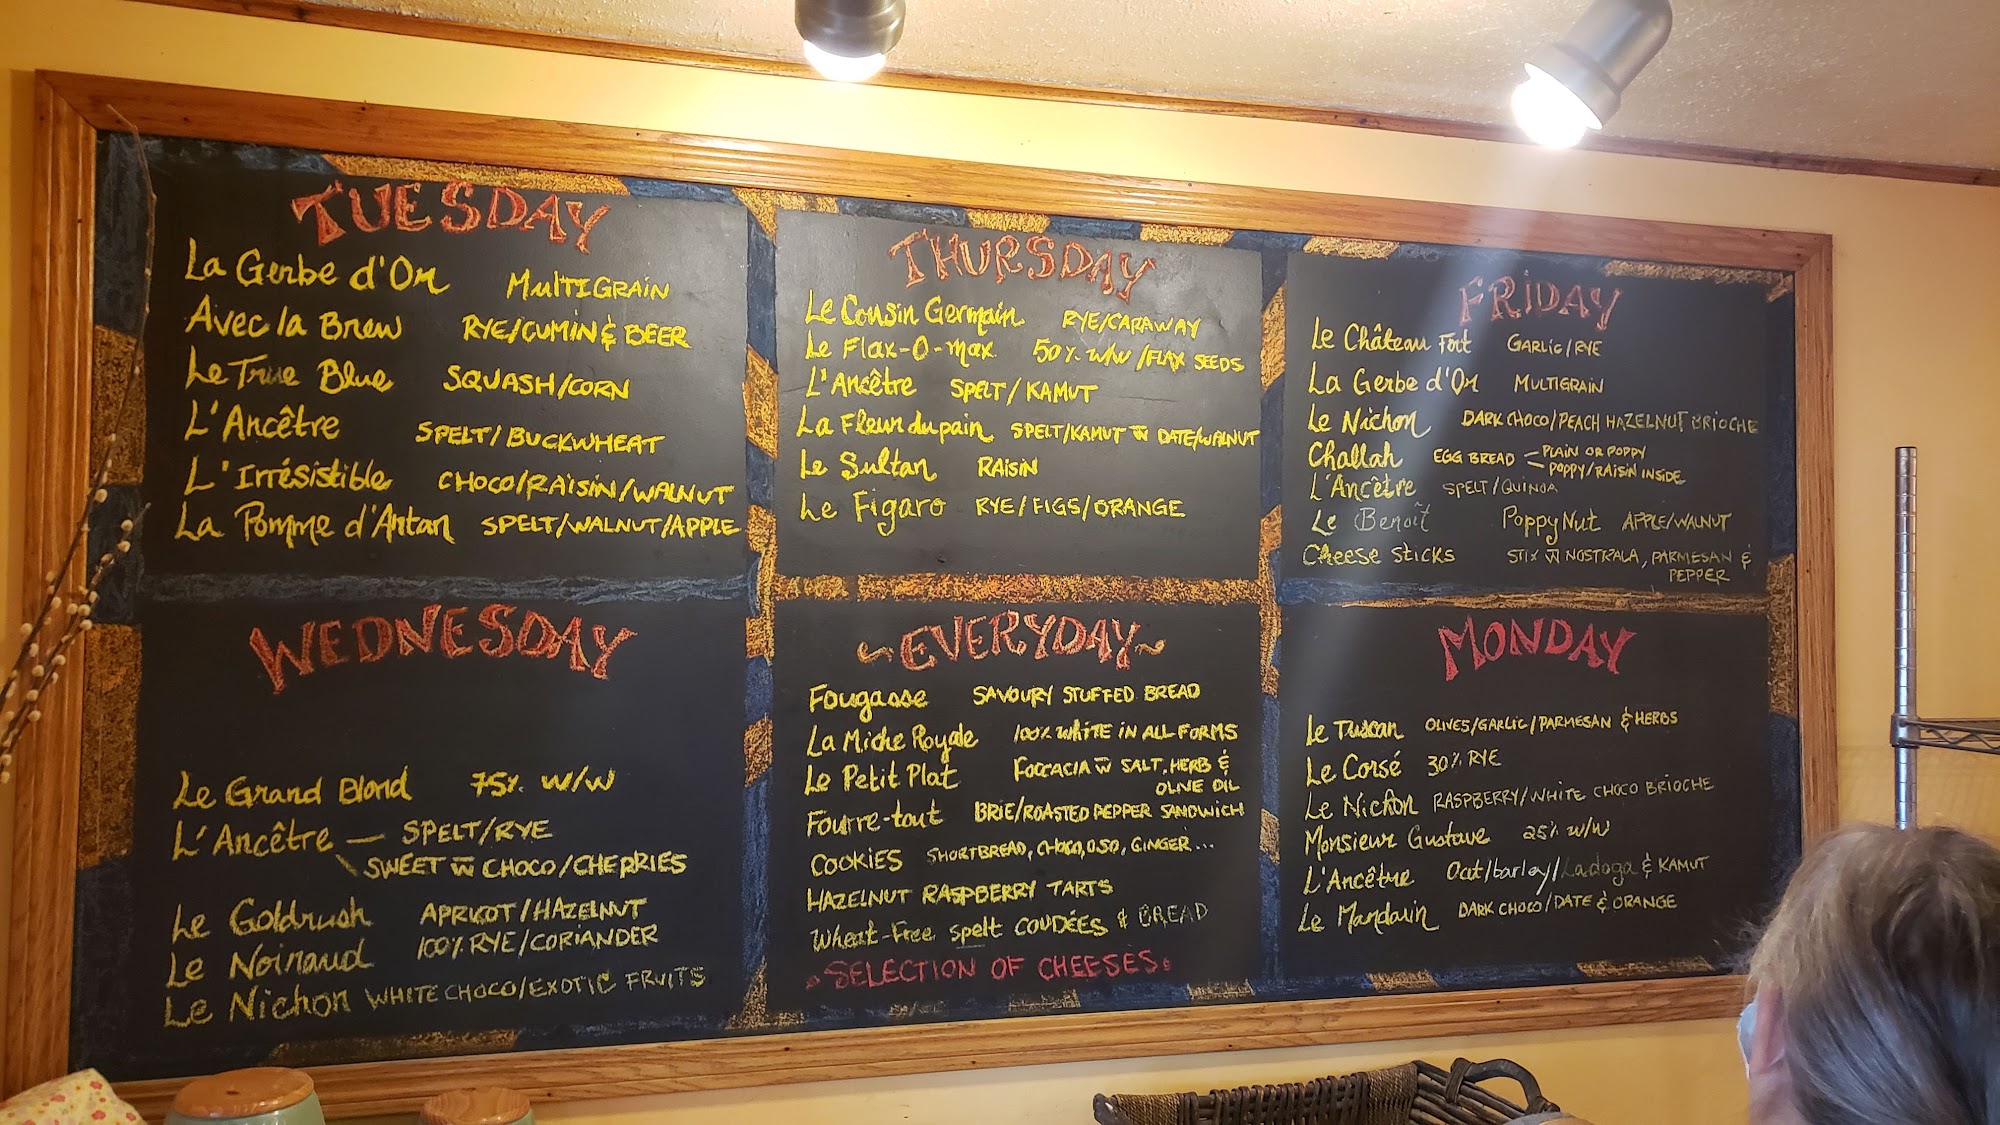 TUESDAY
La Gerbe d'Or MULTIGRAIN
Avec la Brew RYE/CUMIN & BEER
Le True Blue SQUASH/CORN
L'Ancêtre SPELT/BUCKWHEAT
L'Irrésistible CHOCO/RAISIN/WALNUT
La Pomme d'Antan SPELT/WALNUT/APPLE
THURSDAY
Le Cousin Germain RYE/CARAWAY
Le Flax-O-max 50% w/w/FLAX SEEDS
L'Ancêtre SPELT/KAMUT
La Fleur du pain SPELT/KAMUT w DATE/WALNUT
Le Sultan RAISIN
Le Figaro RYE/FIGS/ORANGE
FRIDAY
Le Château Fort GARLIC/RYE
La Gerbe d'Or MULTIGRAIN
Le Nichon DARK CHOCO/PEACH HAZELNUT BRIOCHE
Challah EGG BREAD - PLAIN OR POPPY
- POPPY/RAISIN INSIDE
L'Ancêtre SPELT/QUINOA
Le Benoît PoppyNut APPLE/WALNUT
Cheese sticks STIX w NOSTRALA, PARMESAN &
PEPPER
WEDNESDAY
Le Grand Blond 75% W/W
L'Ancêtre — SPELT/RYE
\ SWEET w CHOCO/CHERRIES
Le Goldrush APRICOT/HAZELNUT
Le Noiraud 100% RYE/CORIANDER
Le Nichon WHITE CHOCO/EXOTIC FRUITS
~EVERYDAY~
Fougasse SAVOURY STUFFED BREAD
La Miche Royale 100% WHITE IN ALL FORMS
Le Petit Plat FOCCACIA w SALT, HERB &
OLIVE OIL
Fourre-tout BRIE/ROASTED PEPPER SANDWICH
COOKIES SHORTBREAD, CHOCO, OSO, GINGER...
HAZELNUT RASPBERRY TARTS
Wheat-Free spelt COUDÉES & BREAD
SELECTION OF CHEESES
MONDAY
Le Tuscan OLIVES/GARLIC/PARMESAN & HERBS
Le Corsé 30% RYE
Le Nichon RASPBERRY/WHITE CHOCO BRIOCHE
Monsieur Gustave 25% W/W
L'Ancêtre Oat/barley/Ladoga & KAMUT
Le Mandarin DARK CHOCO/DATE & ORANGE